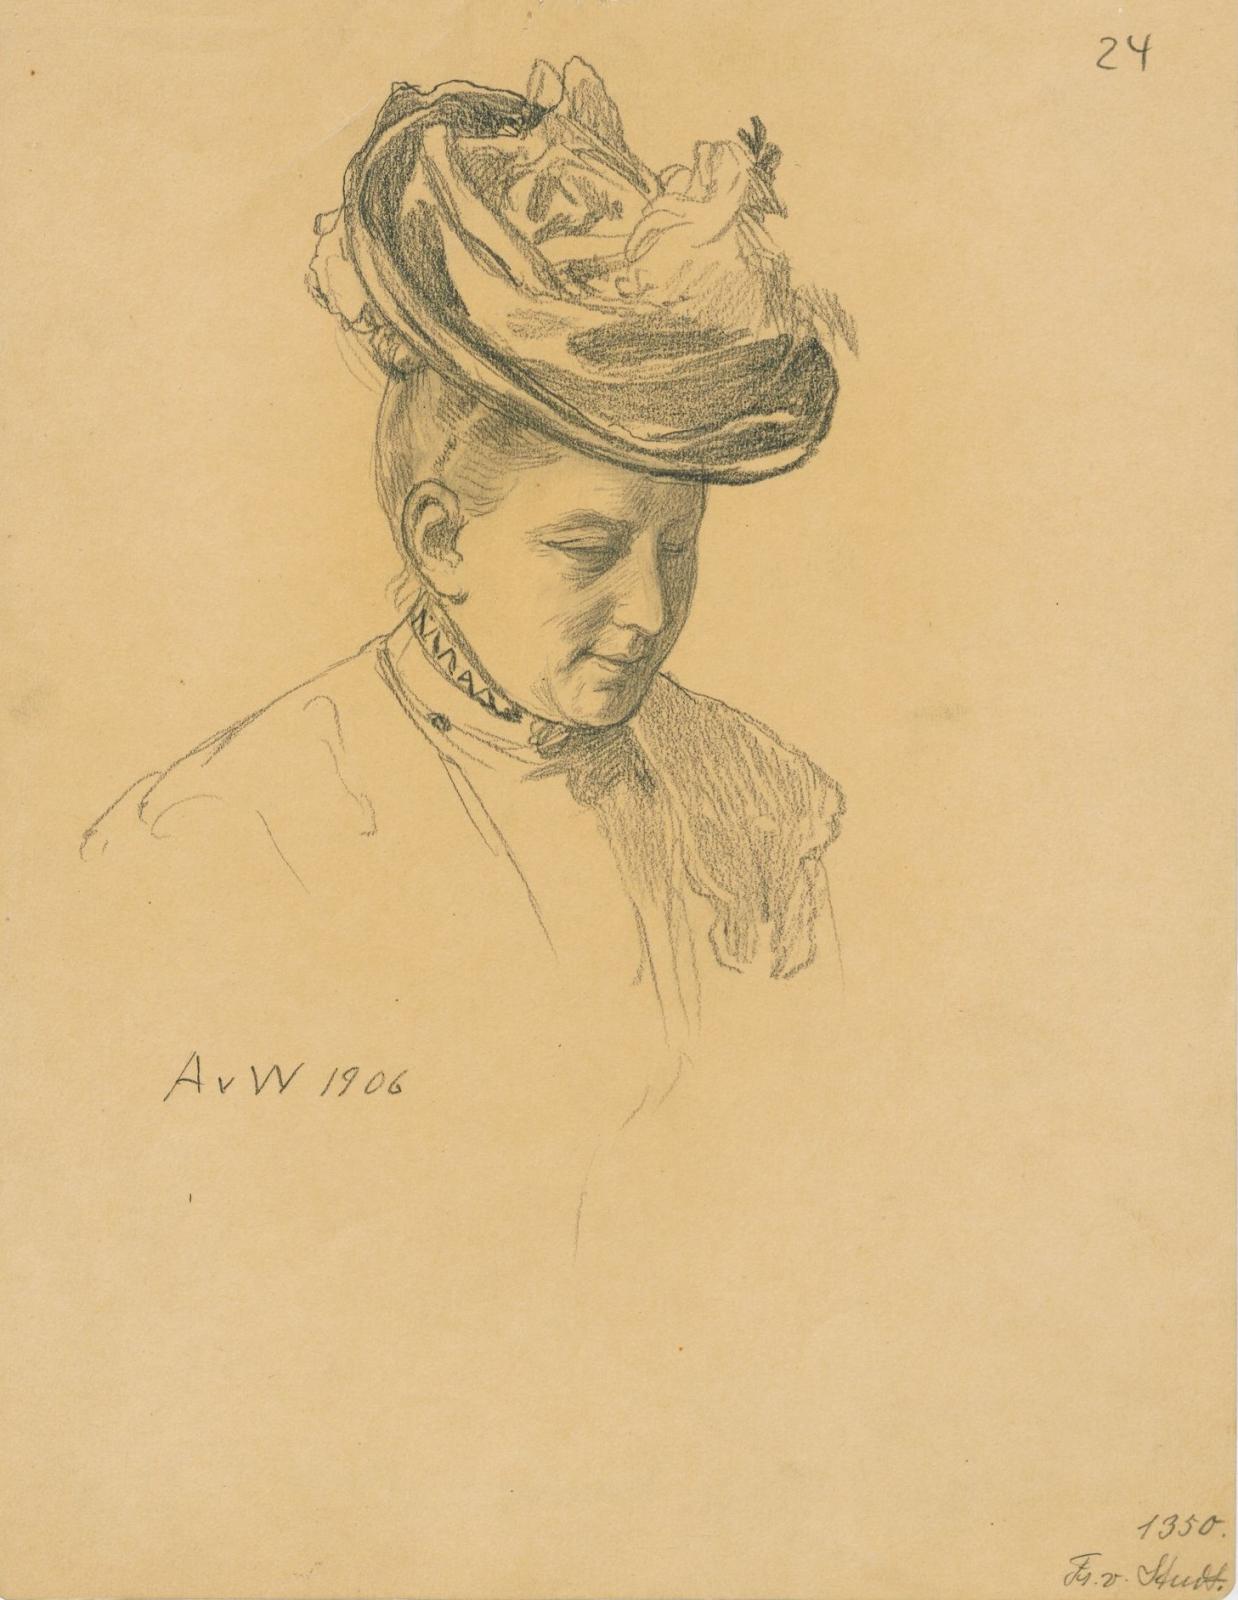 24
A v W 1906
1350.
Fr. v. Studt.